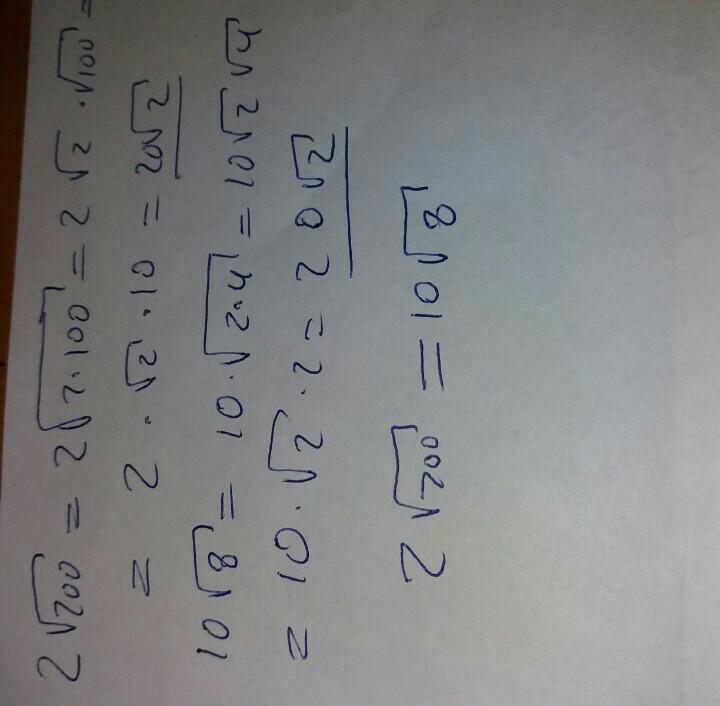 2√200 = 2√2·100 = 2√2·√100 =
= 2·√2·10 = 20√2
10√8 = 10·√2·4 = 10√2√4
= 10·√2·2 = 20√2
2√200 = 10√8